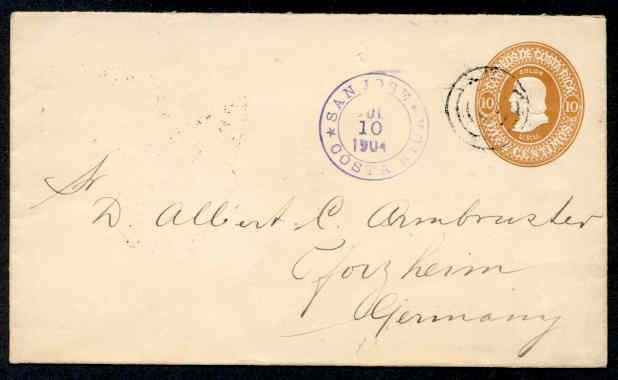 CORREOS DE COSTA RICA
COLON
10 10
DIEZ CENTIMOS
SAN JOSE
JUL
10
1904
COSTA RICA
Sr
D. Albert C. Armbruster
Pforzheim
Germany